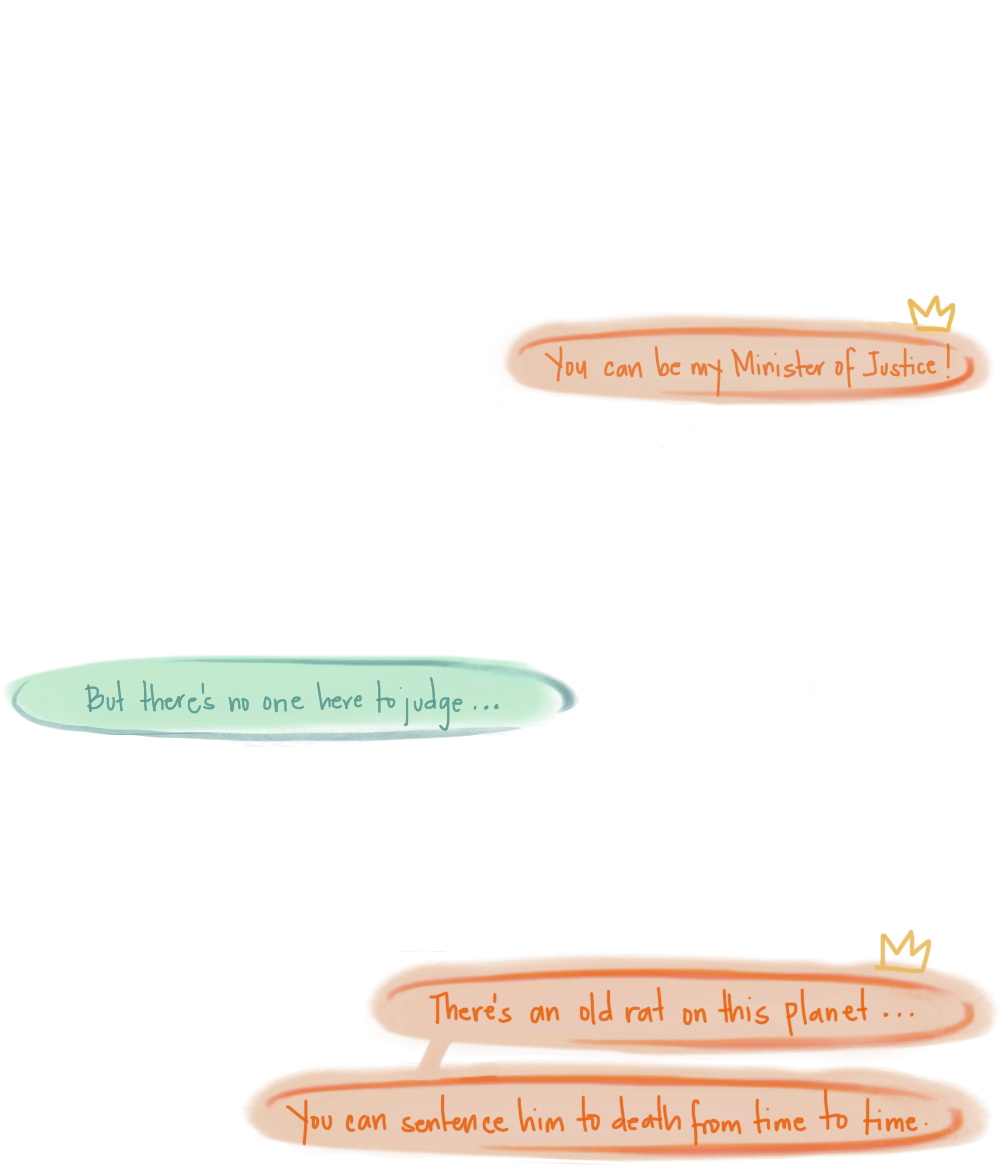 You can be my Minister of Justice!
But there's no one here to judge...
There's an old rat on this planet...
You can sentence him to death from time to time.